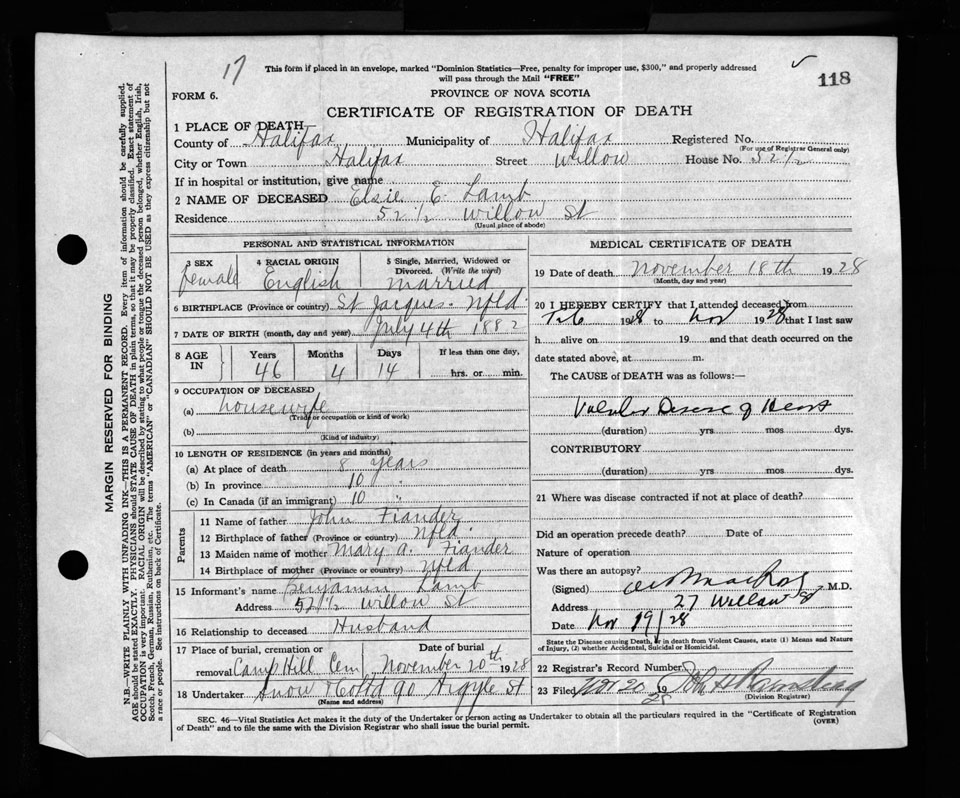 17
This form if placed in an envelope, marked "Dominion Statistics—Free, penalty for improper use, $300," and properly addressed
will pass through the Mail "FREE"
118
FORM 6.
PROVINCE OF NOVA SCOTIA
CERTIFICATE OF REGISTRATION OF DEATH
1 PLACE OF DEATH
County of Halifax Municipality of Halifax Registered No.
(For use of Registrar General only)
City or Town Halifax Street Willow House No. 52 1/2
If in hospital or institution, give name
2 NAME OF DECEASED Elsie E. Lamb
Residence 52 1/2 Willow St
(Usual place of abode)
PERSONAL AND STATISTICAL INFORMATION
3 SEX female
4 RACIAL ORIGIN English
5 Single, Married, Widowed or Divorced. (Write the word) married
6 BIRTHPLACE (Province or country) St Jacques - Nfld.
7 DATE OF BIRTH (month, day and year) July 4th 1882
8 AGE IN Years 46 Months 4 Days 14 If less than one day, hrs. or min.
9 OCCUPATION OF DECEASED
(a) housewife
(Trade or occupation or kind of work)
(b)
(Kind of industry)
10 LENGTH OF RESIDENCE (in years and months)
(a) At place of death 8 years
(b) In province 10 "
(c) In Canada (if an immigrant) 10 "
Parents
11 Name of father John Fiander
12 Birthplace of father (Province or country) Nfld.
13 Maiden name of mother Mary A. Fiander
14 Birthplace of mother (Province or country) Nfld
15 Informant's name Benjamin Lamb
Address 52 1/2 Willow St
16 Relationship to deceased Husband
17 Place of burial, cremation or removal Camp Hill Cem
Date of burial November 20th 1928
18 Undertaker Snow & Co Ltd 90 Argyle St
(Name and address)
MEDICAL CERTIFICATE OF DEATH
19 Date of death November 18th 1928
(Month, day and year)
20 I HEREBY CERTIFY that I attended deceased from
Feb 1928 to Nov 1928 that I last saw
h alive on 19 and that death occurred on the
date stated above, at m.
The CAUSE of DEATH was as follows:—
Valvular Disease of Heart
(duration) yrs mos dys.
CONTRIBUTORY
(duration) yrs mos dys.
21 Where was disease contracted if not at place of death?
Did an operation precede death? Date of
Nature of operation
Was there an autopsy?
(Signed) M.D.
Address 27 Willow St
Date Nov 19/28
State the Disease causing Death, or in death from Violent Causes, state (1) Means and Nature
of Injury, (2) whether Accidental, Suicidal or Homicidal.
22 Registrar's Record Number
23 Filed Nov 20 1928
(Division Registrar)
SEC. 46—Vital Statistics Act makes it the duty of the Undertaker or person acting as Undertaker to obtain all the particulars required in the "Certificate of Registration
of Death" and to file the same with the Division Registrar who shall issue the burial permit.
(OVER)
MARGIN RESERVED FOR BINDING
N.B.—WRITE PLAINLY WITH UNFADING INK—THIS IS A PERMANENT RECORD. Every item of information should be carefully supplied.
AGE should be stated EXACTLY. PHYSICIANS should STATE CAUSE OF DEATH in plain terms, so that it may be properly classified. Exact statement of
OCCUPATION is very important. RACIAL ORIGIN will be described by stating to what people or tongue the deceased person belonged, whether English, Irish,
Scotch, French, German, Russian, Ruthenian, etc. The terms "AMERICAN" or "CANADIAN" SHOULD NOT BE USED as they express citizenship but not
a race or people. See instructions on back of Certificate.